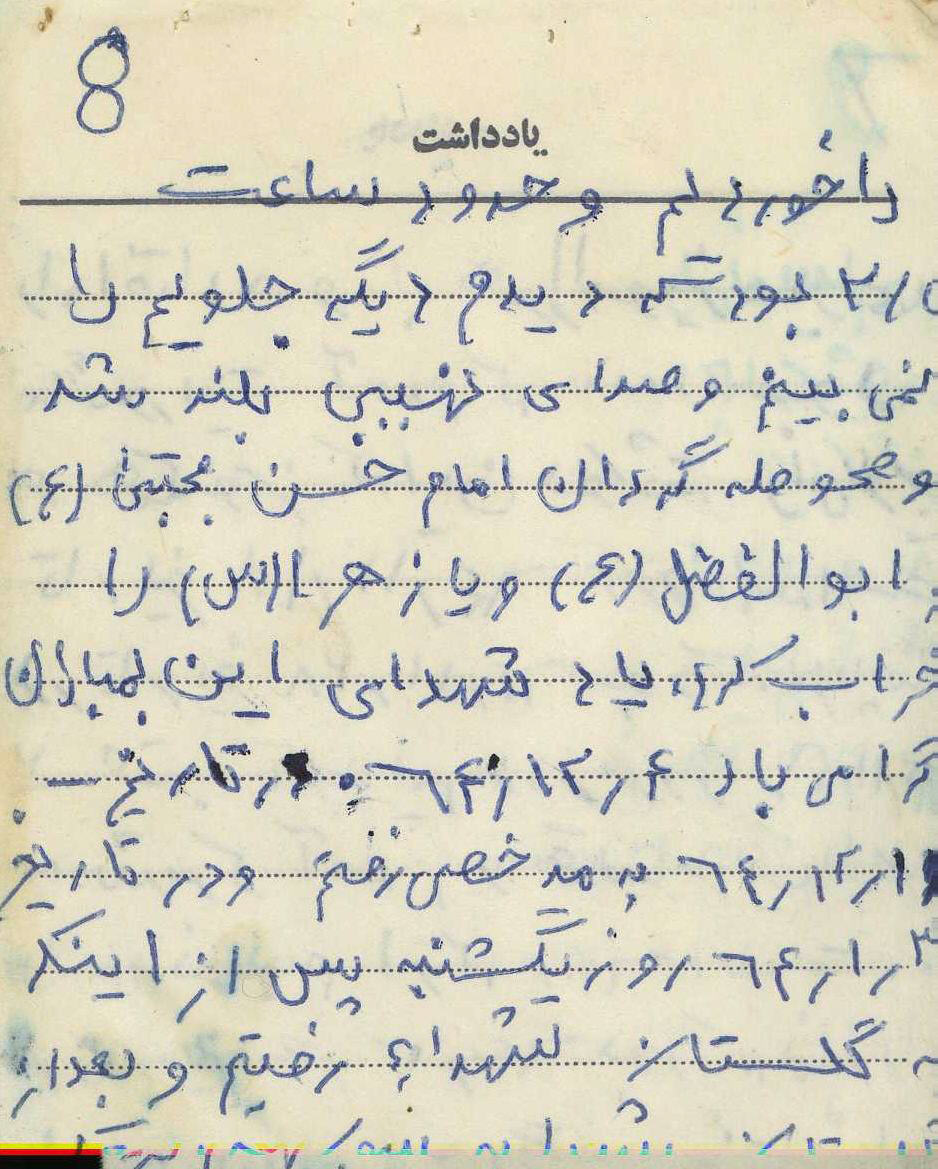 8
یادداشت
را خوردیم و حدود ساعت
۲/ بود که دیدم دیگه جلویم را
نمی بینم و صدای مهیبی بلند شد
و محوطه گردان امام حسن مجتبی (ع)
ابوالفضل (ع) و یا زهرا (س) را
خراب کرد، یاد شهدای این بمباران
گرامی باد ۶۴/۱۲/۴ . در تاریخ –
۶۴/۱۲/ به مرخصی رفتم و در تاریخ
۶۴/۱/۳ روز یکشنبه پس از اینکه
گلستان شهداء رفتیم و بعد از